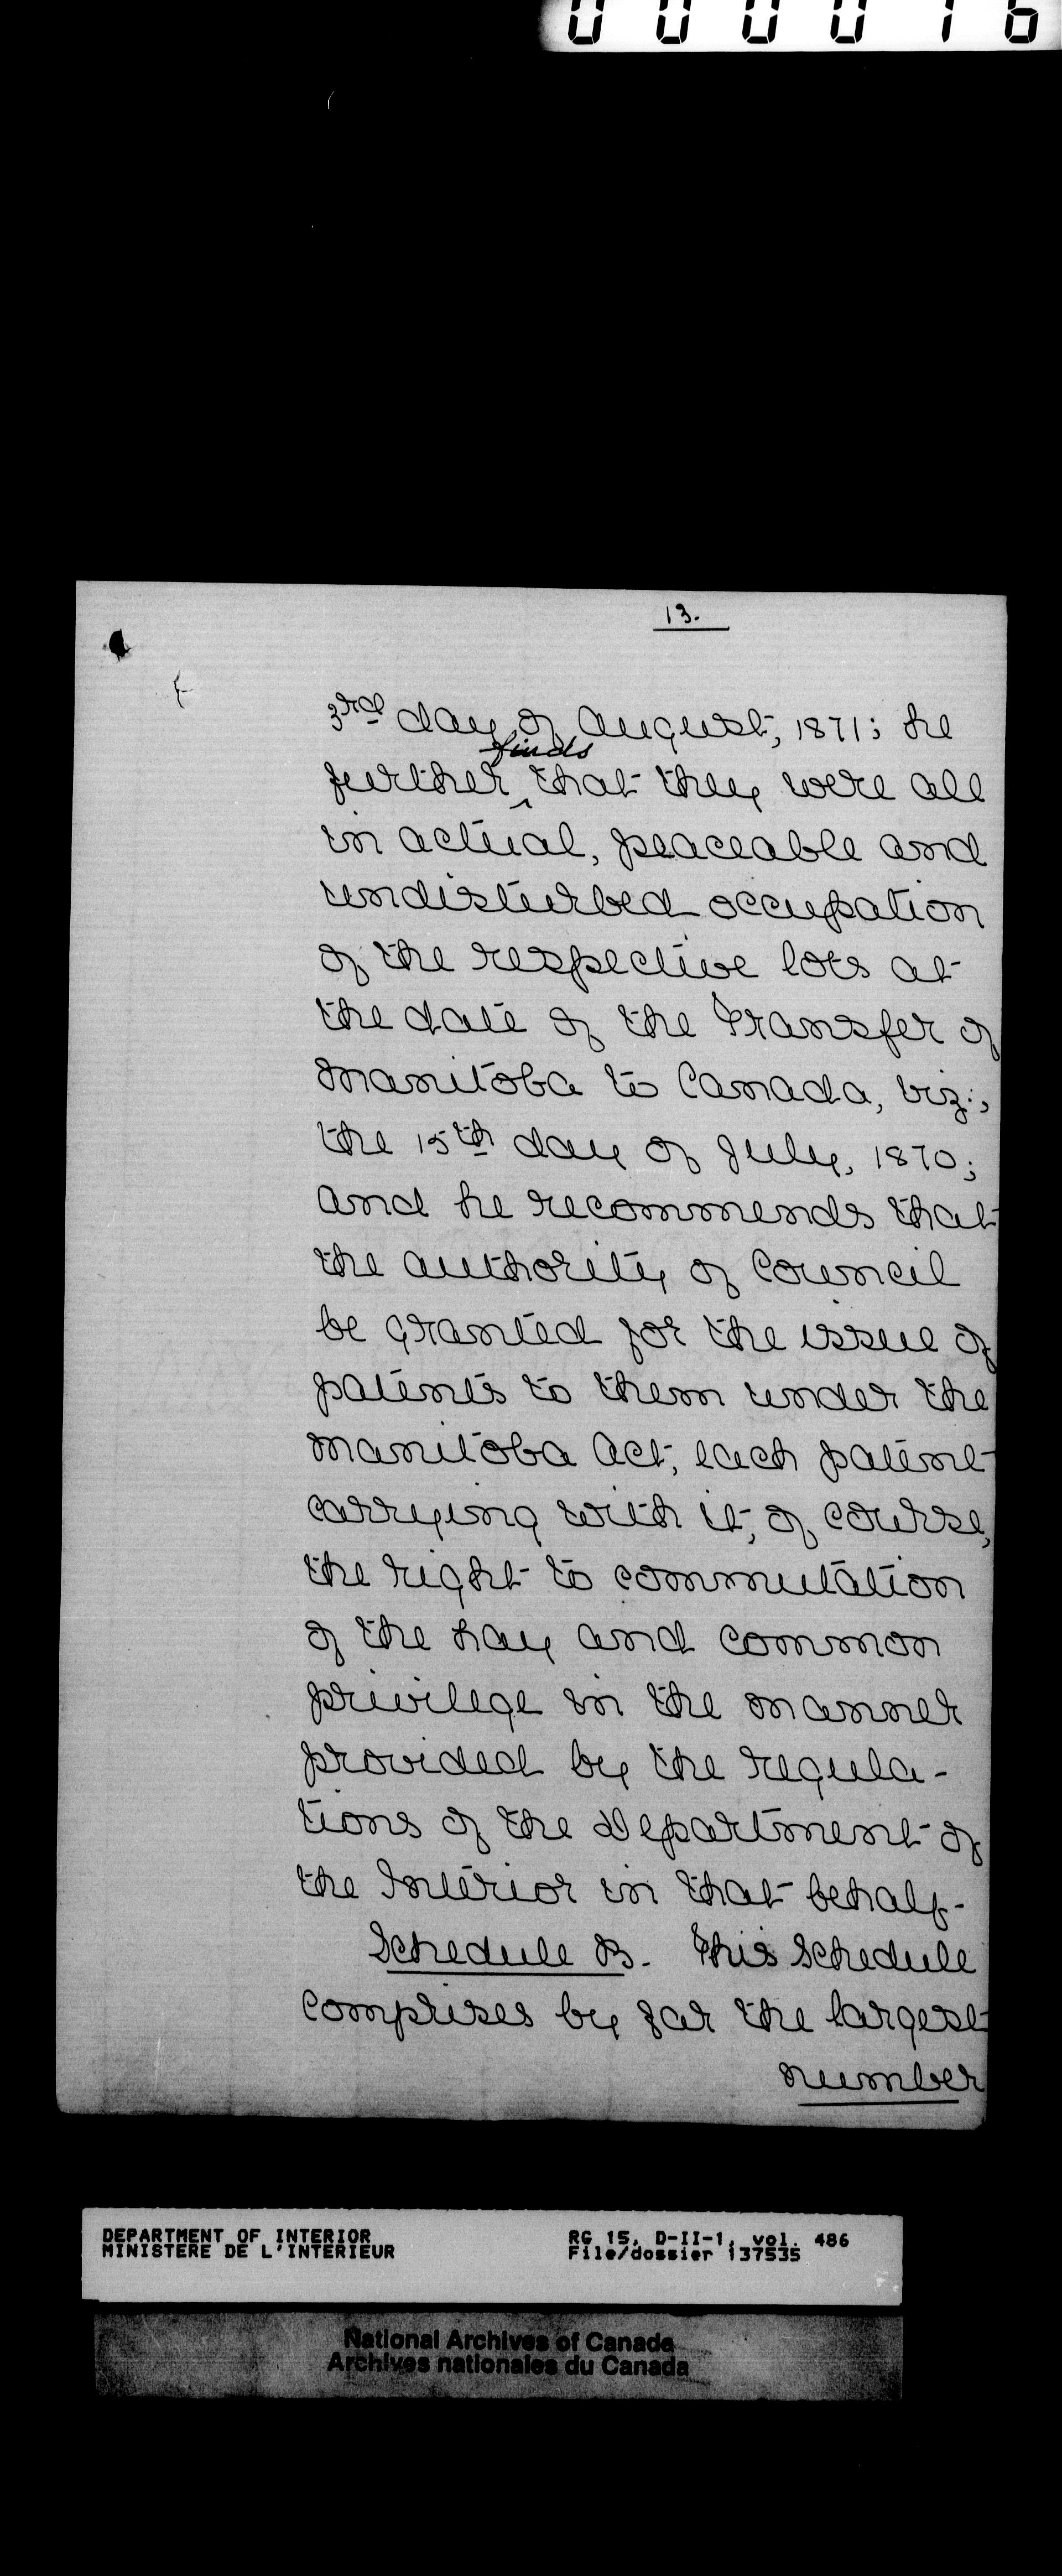 000016
13.
3rd day of August, 1871; he
finds
further ^ that they were all
in actual, peaceable and
undisturbed occupation
of the respective lots at
the date of the Transfer of
Manitoba to Canada, viz:,
the 15th day of July, 1870;
and he recommends that
the authority of Council
be granted for the issue of
patents to them under the
Manitoba Act, each patent
carrying with it, of course,
the right to commutation
of the hay and common
privilege in the manner
provided by the regula-
tions of the Department of
the Interior in that behalf.
Schedule B. This Schedule
comprises by far the largest
number
DEPARTMENT OF INTERIOR RG 15, D-II-1, vol. 486
MINISTERE DE L'INTERIEUR File/dossier 137535
National Archives of Canada
Archives nationales du Canada